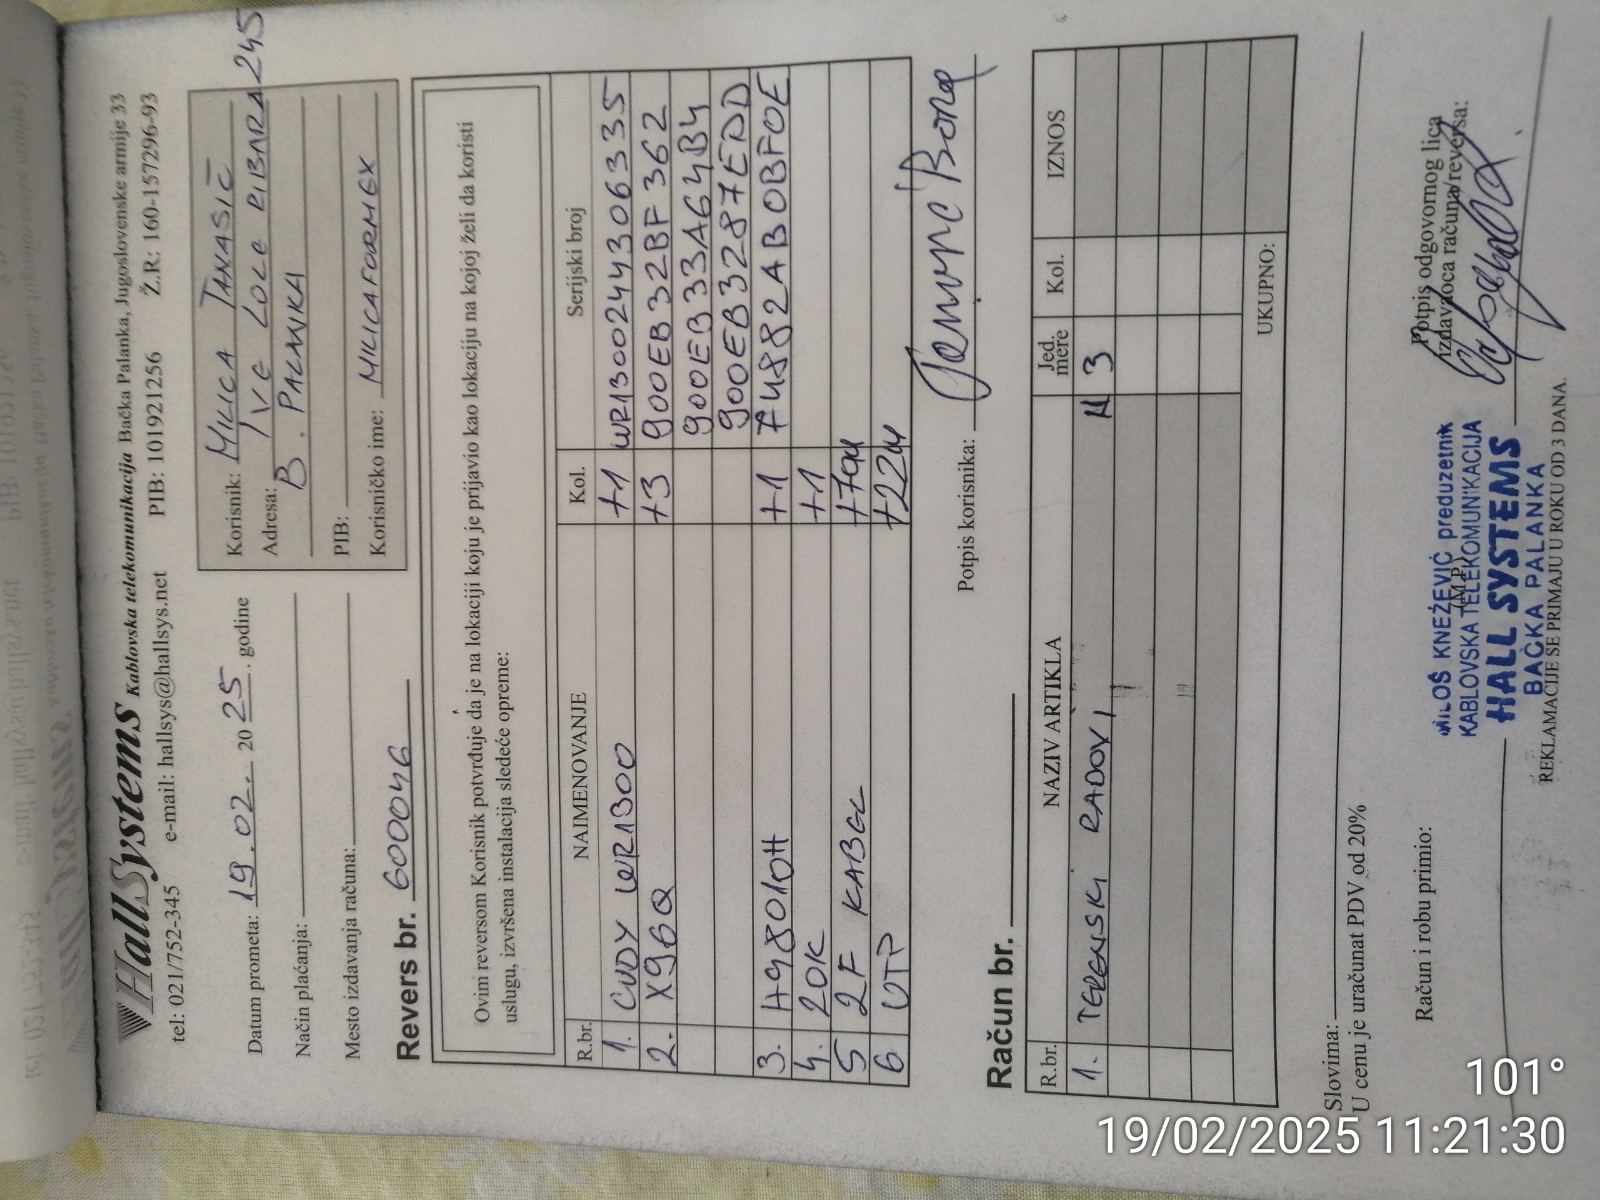 HallSystems Kablovska telekomunikacija Bačka Palanka, Jugoslovenske armije 33
tel: 021/752-345 e-mail: hallsys@hallsys.net PIB: 101921256 Ž.R: 160-157296-93
Datum prometa: 19.02. 2025. godine
Način plaćanja:
Mesto izdavanja računa:
Korisnik: MILICA TANASIĆ
Adresa: IVE LOLE RIBARA 245
B. PALANKA
PIB:
Korisničko ime: MILICAFORMGX
Revers br. 6000046
Ovim reversom Korisnik potvrđuje da je na lokaciji koju je prijavio kao lokaciju na kojoj želi da koristi
uslugu, izvršena instalacija sledeće opreme:
R.br. NAIMENOVANJE Kol. Serijski broj
1. CUDY WR1300 +1 WR1300244306335
2. X96Q +3 900EB32BF362
900EB33A64B4
900EB3287EDD
3. H98010H +1 7U882AB0BF0E
4. 20K +1
5 2F KABGL +70M
6 UTP +22M
Potpis korisnika:
Račun br.
R.br. NAZIV ARTIKLA Jed. mere Kol. IZNOS
1. TERENSKI RADOVI H 3
UKUPNO:
Slovima:
U cenu je uračunat PDV od 20%
Račun i robu primio:
(M.P.)
Potpis odgovornog lica
izdavaoca računa/reversa:
MILOŠ KNEŽEVIĆ preduzetnik
KABLOVSKA TELEKOMUNIKACIJA
HALL SYSTEMS
BAČKA PALANKA
REKLAMACIJE SE PRIMAJU U ROKU OD 3 DANA.
101°
19/02/2025 11:21:30